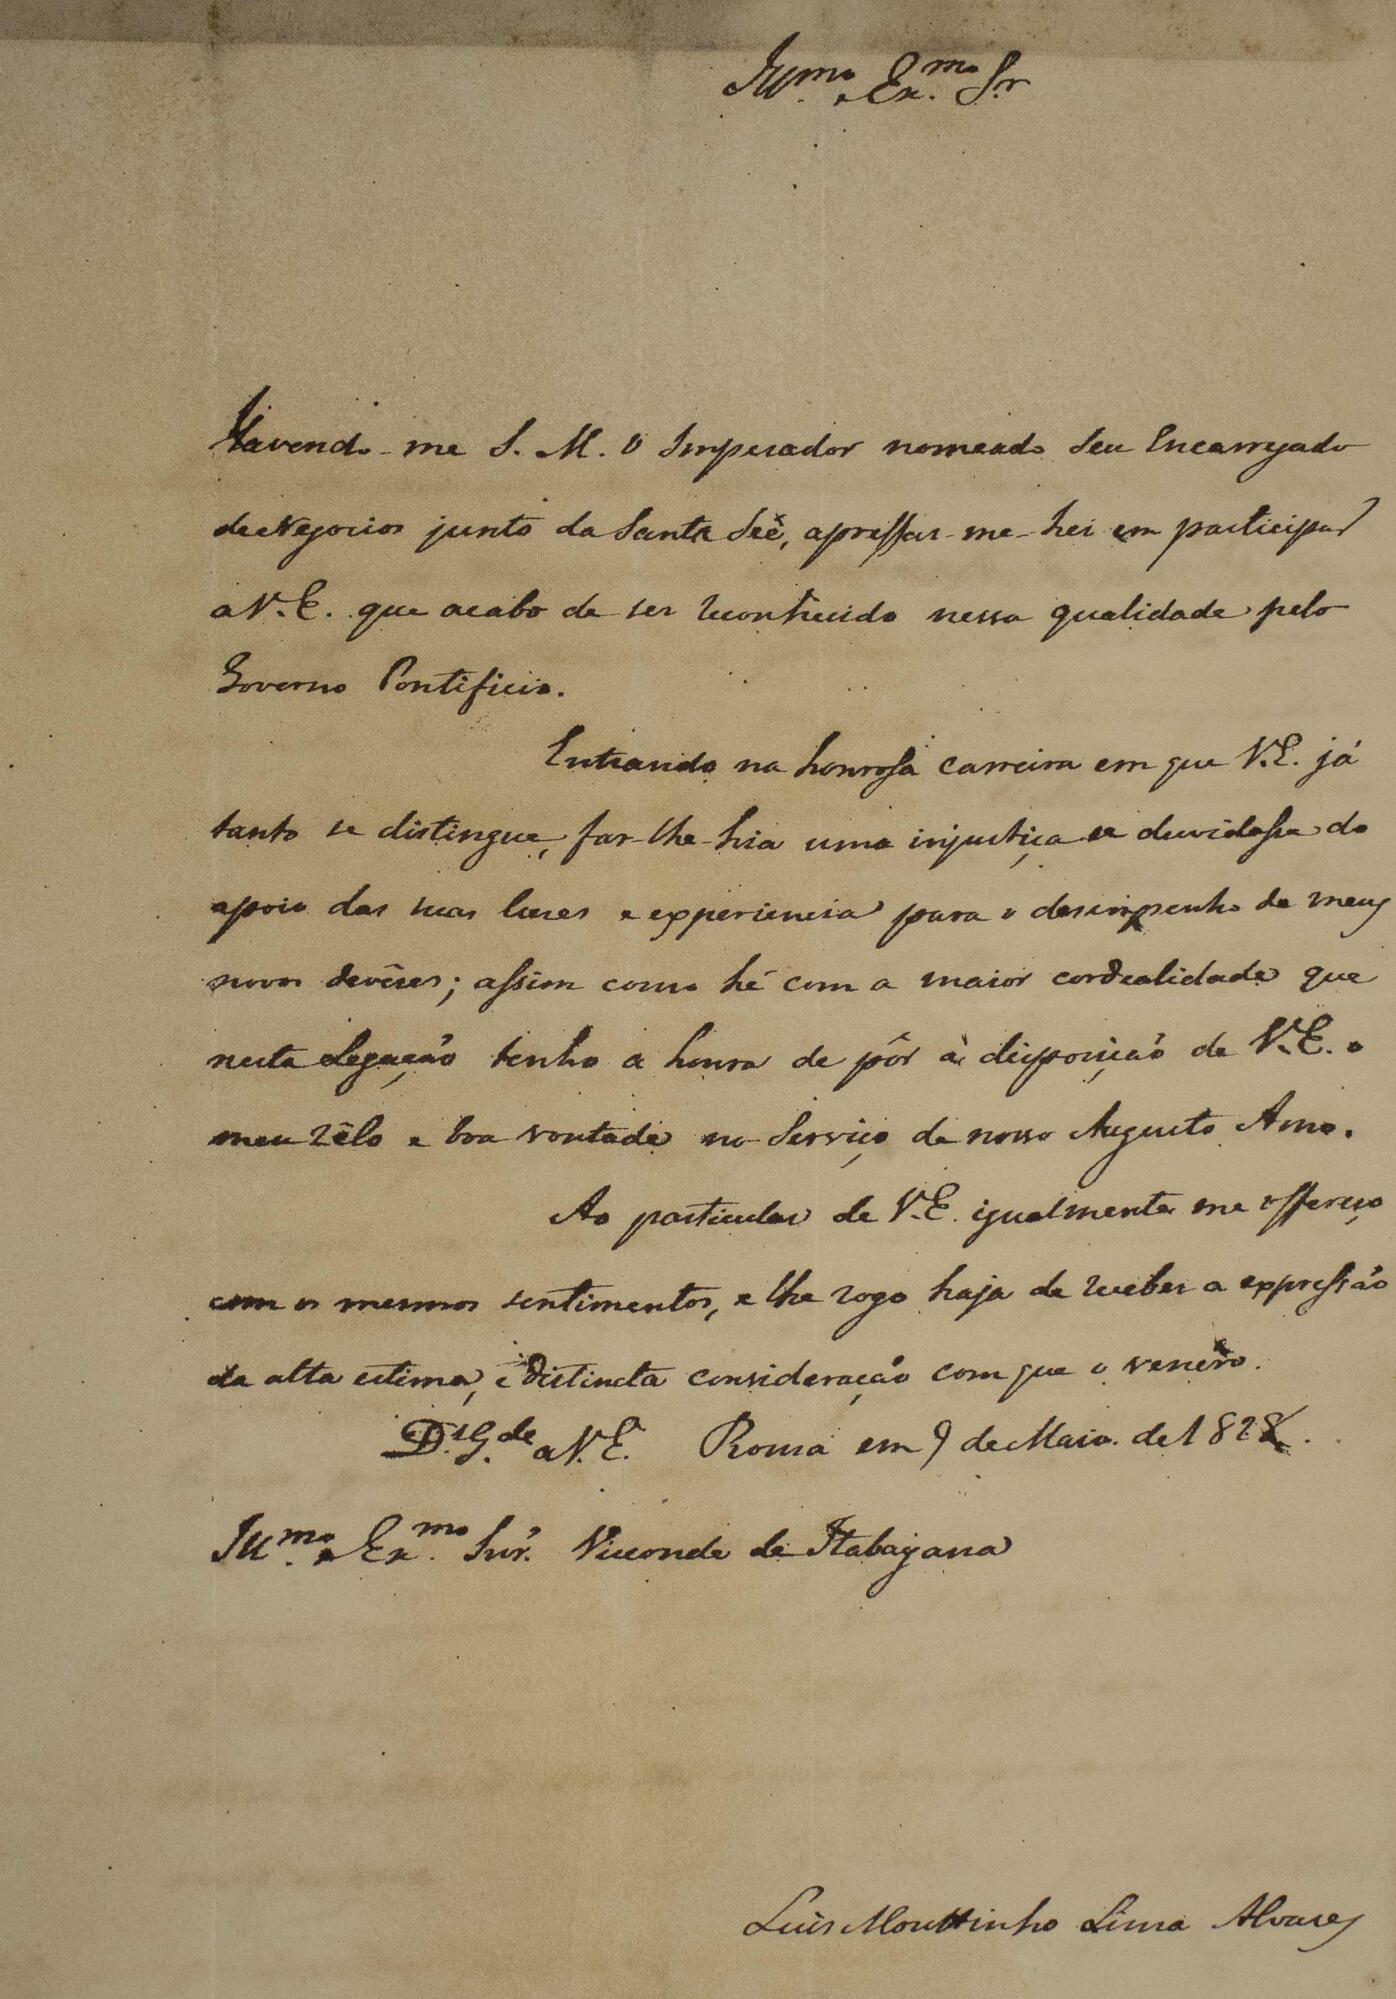 Illmo. e Exmo. Sr
Havendo-me S. M. O Imperador nomeado Seu Encarregado
de Negocios junto da Santa Seê, apressar-me-hei em participar
a V. E. que acabo de ser reconhecido nessa qualidade pelo
Governo Pontificio.
Entrando na honrosa carreira em que V. E. já
tanto se distingue, far-lhe-hia uma injustiça se duvidasse do
apoio das suas luzes e experiencia para o desimpenho de meus
novos devêres; assim como hé com a maior cordealidade que
nesta Legação tenho a honra de pôr à disposição de V. E. o
meu zêlo e boa vontade no Serviço de nosso Augusto Amo.
Ao particular de V. E. igualmente me offereço
com os mesmos sentimentos, e lhe rogo haja de receber a expressão
da alta estima, e distincta consideração com que o venéro.
Ds. Gde a V. E. Roma em 9 de Maio de 1828.
Illmo. e Exmo. Snr. Visconde de Itabayana
Luis Mouttinho Lima Alvares